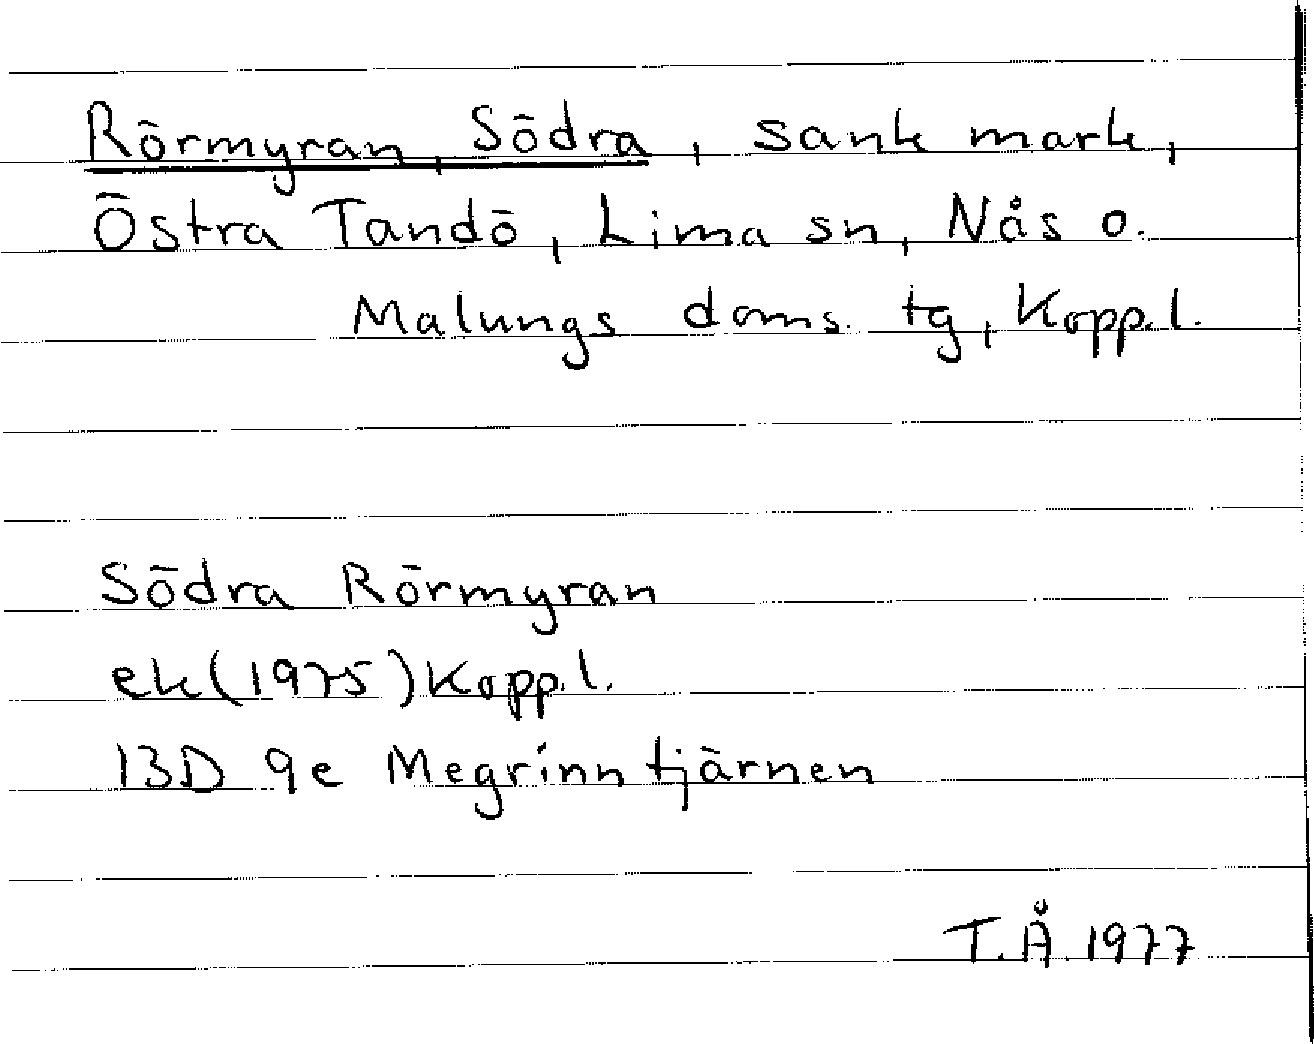 Rörmyran, Södra, sank mark,
Östra Tandö, Lima sn, Nås o.
Malungs doms. tg, Kopp.l.
Södra Rörmyran
ek (1975) Kopp.l.
13D 9e Megrinntjärnen
T.Å. 1977